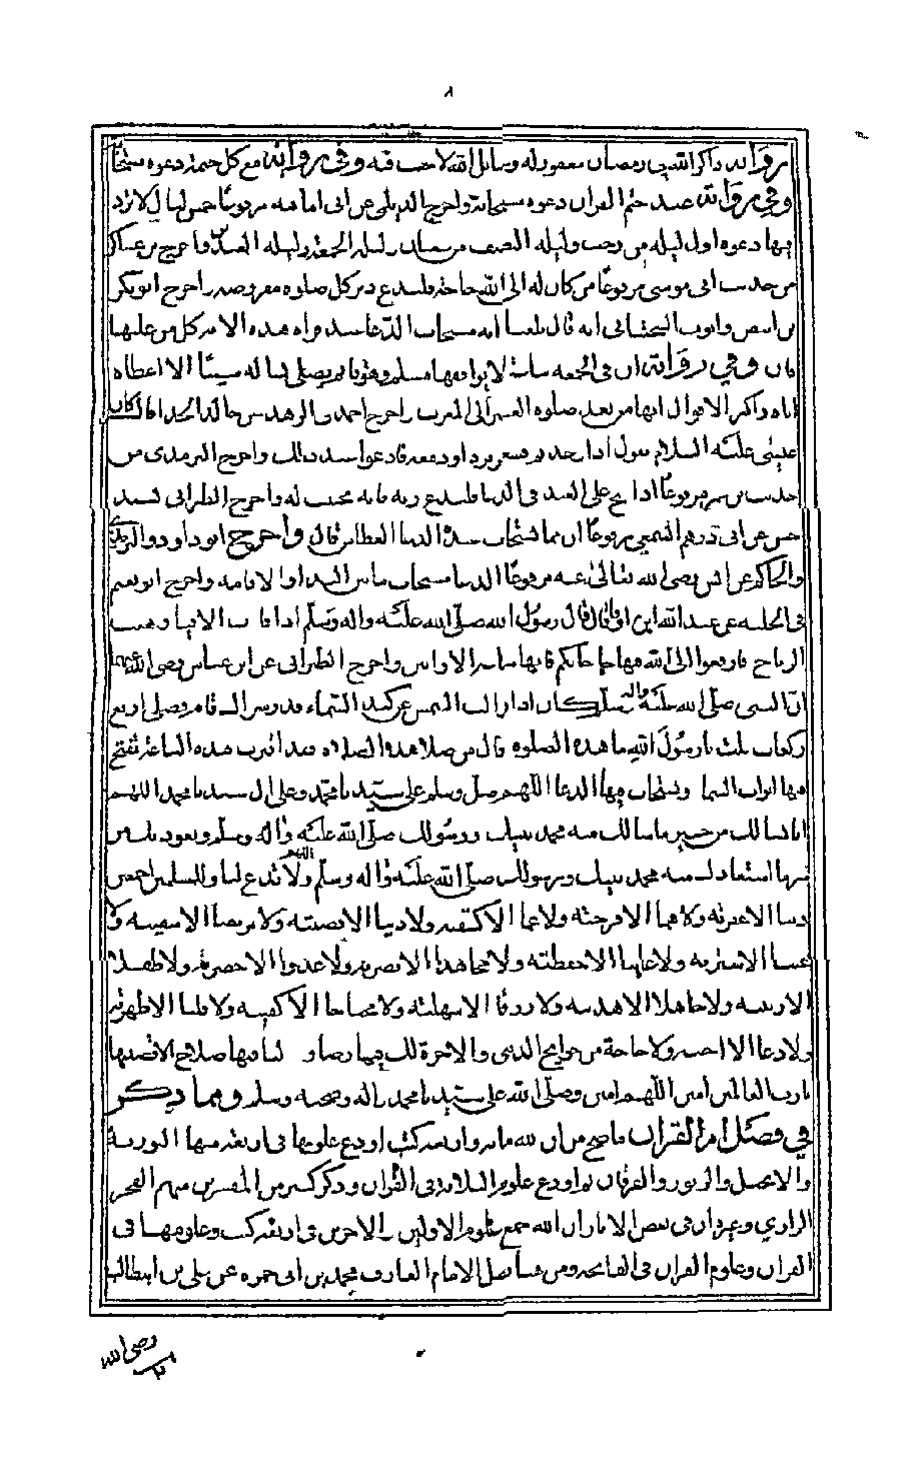 ٨
رواية ذاكر الله في رمضان مغفور له وسائل الله لا يخيب فيه وفي رواية مع كل ختمة دعوة مستجابة
وفي رواية عند ختم القرآن دعوة مستجابة واخرج الديلمي عن ابي امامه مرفوعًا خمس ليال لا ترد
فيها دعوه اول ليله من رجب وليله النصف من شعبان وليله الجمعة وليله العيدين واخرج بن عساكر
من حديث ابي موسى مرفوعًا من كان له الى الله حاجة فليدع دبر كل صلوه مفروضه واخرج ابو بكر
بن ابيض وايوب السختياني انه قال بلغنا انه يستجاب الدعا عند قراءه هذه الايه كل من عليها
فان وفي رواية ان في الجمعه ساعة لا يوافقها مسلم وهو قايم يصلي يسأله شيئًا الا اعطاه
اياه واكثر الاقوال انها من بعد صلاه العصر الى المغرب واخرج احمد في الزهد عن خالد الحذا قال كان
عيسى عليه السلام يقول اذا وجدتم قشعريره ودمعه فادعوا عند ذلك واخرج الترمذي من
حديث مرفوعًا اذا فليدع ربه فانه مجيب له واخرج الطبراني بسند
حسن عن ابي رهم السمعي مرفوعًا ان مما يستجاب عنده الدعا العطاس قال واخرج ابو داود والترمذي
والحاكم عن انس رضي الله تعالى عنه مرفوعًا الدعا مستجاب ما بين النداء والاقامه واخرج ابو نعيم
في الحليه عن عبد الله ابن ابي اوفى قال قال رسول الله صلى الله عليه واله وسلم اذا فات الافيا وهبت
الرياح فارفعوا الى الله فيها حوائجكم فانها ساعه الاوابين واخرج الطبراني عن ابن عباس رضي الله عنهما
ان النبي صلى الله عليه واله وسلم كان اذا زالت الشمس عن كبد السماء قدر شراك قام وصلى اربع
ركعات قلت يا رسول الله ما هذه الصلوه قال من صلاهن هذه الساعة تفتح
فيها ابواب السما ويستجاب فيها الدعا اللهم صل وسلم على سيدنا محمد وعلى ال سيدنا محمد اللهم
انا نسالك من خير ما سالك منه محمد نبيك ورسولك صلى الله عليه واله وسلم ونعوذ بك من
شر ما استعاذ بك منه محمد نبيك ورسولك صلى الله عليه واله وسلم اللهم ولا تدع لنا وللمسلمين اجمعين
ذنبا الا غفرته ولا هما الا فرجته ولا غما الا كشفته ولا دينا الا قضيته ولا مريضا الا شفيته ولا
عيبا الا سترته ولا غايبا الا حفظته ولا مجاهدا الا نصرته ولا عدوا الا ولا طفلا
الا ربيته ولا جاهلا الا هديته ولا رزقا الا سهلته ولا الا كفيته ولا قلبا الا طهرته
ولا دعا الا اجبته ولا حاجة من حوايج الدنيا والاخرة لك فيها رضا ولنا فيها صلاح الا قضيتها
يا رب العالمين امين اللهم امين وصلى الله على سيدنا محمد واله وصحبه وسلم ومما ذكر
في فضل ام القرآن ما صح من ان لله مايه واربعه كتب اودع علومها في اربعه منها التوريه
والانجيل والزبور والفرقان ثم اودع علوم الثلاثة في القران وذكر كثير من المفسرين منهم الفخر
الرازي وغيره ان في بعض الاثار ان الله جمع علوم الاولين والاخرين في اربعة كتب وعلومها في
القران وعلوم القران في الفاتحه ومن الامام العارف محمد بن ابي جمره عن علي بن ابيطالب
رضي الله